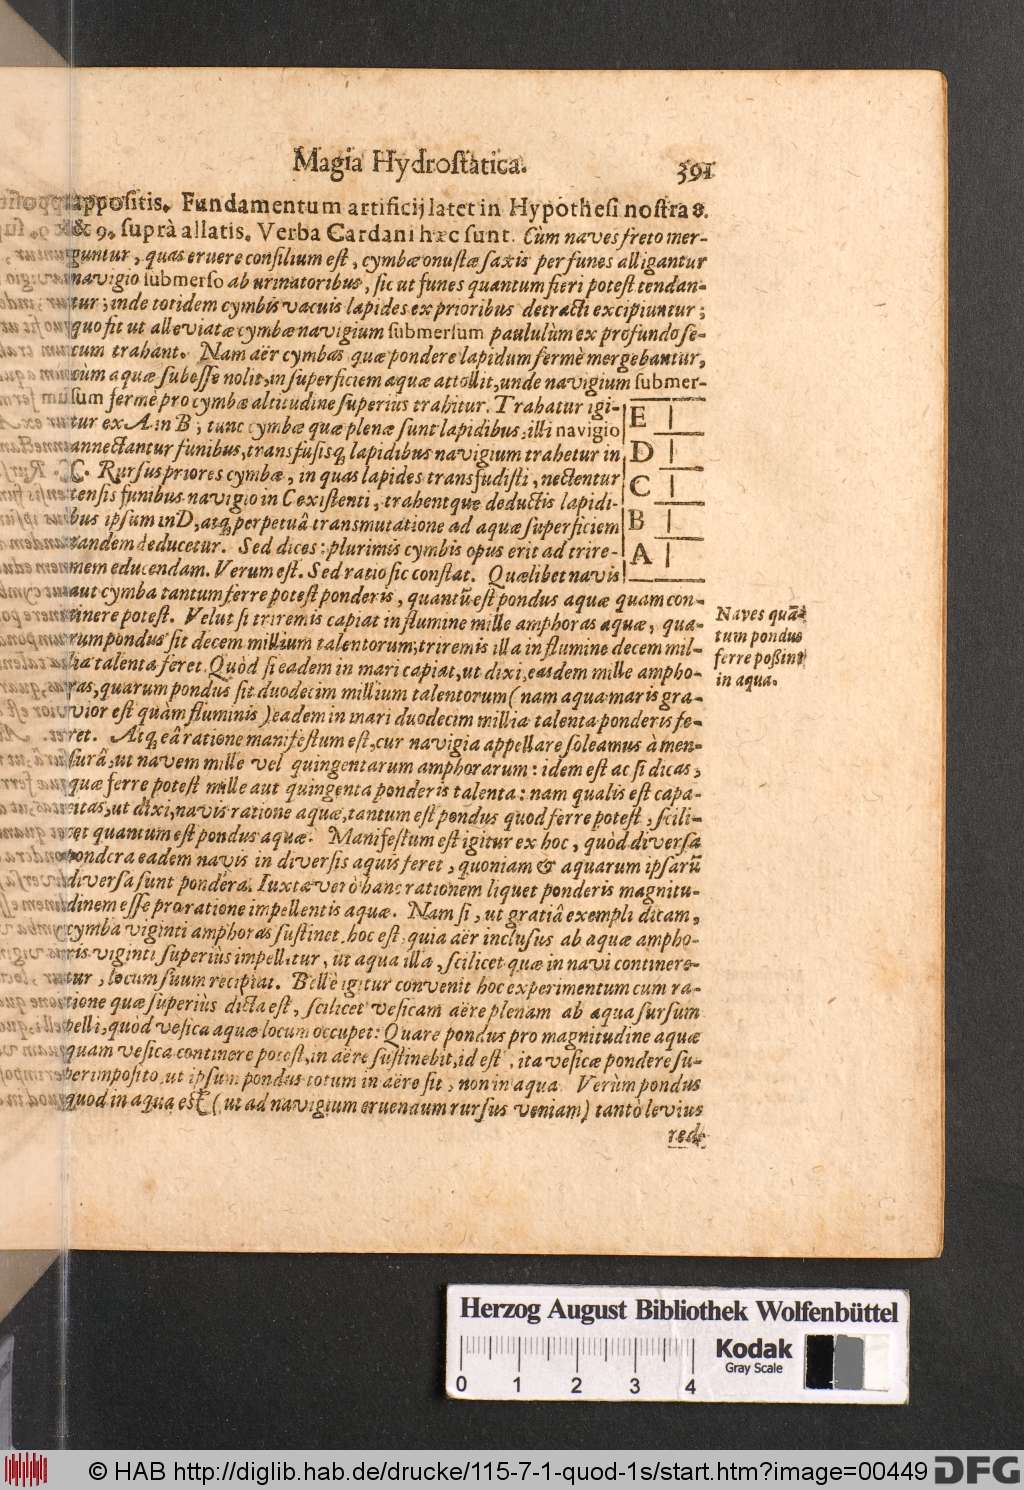 Magia Hydroſtatica. 391
appoſitis. Fundamentum artificij latet in Hypotheſi noſtra 8.
& 9. ſuprà allatis. Verba Cardani hæc ſunt. Cùm naves freto mer-
guntur, quas eruere conſilium eſt, cymbæ onuſtæ ſaxis per funes alligantur
navigio ſubmerſo ab urinatoribus, ſic ut funes quantum fieri poteſt tendan-
tur; inde totidem cymbis vacuis lapides ex prioribus detracti excipiuntur;
quo fit ut alleviatæ cymbæ navigium ſubmerſum paululùm ex profundo ſe-
cum trahant. Nam aër cymbas quæ pondere lapidum fermè mergebantur,
cùm aquæ ſubeſſe nolit, in ſuperficiem aquæ attollit, unde navigium ſubmer-
ſum fermè pro cymbæ altitudine ſuperiùs trahitur. Trahatur igi-
tur ex A in B; tunc cymbæ quæ plenæ ſunt lapidibus, illi navigio
annectantur funibus, transfuſisq́ lapidibus navigium trahetur in
C. Rurſus priores cymbæ, in quas lapides transfudiſti, nectentur
tenſis funibus navigio in C exiſtenti, trahentque deductis lapidi-
bus ipſum in D, atq́ perpetuâ transmutatione ad aquæ ſuperficiem
tandem deducetur. Sed dices: plurimis cymbis opus erit ad trire-
mem educendam. Verum eſt. Sed ratio ſic conſtat. Quælibet navis
E
D
C
B
A
aut cymba tantum ferre poteſt ponderis, quantũ eſt pondus aquæ quam con-
tinere poteſt. Velut ſi triremis capiat in flumine mille amphoras aquæ, qua-
rum pondus ſit decem millium talentorum; triremis illa in flumine decem mil-
lia talenta feret. Quòd ſi eadem in mari capiat, ut dixi, easdem mille ampho-
ras, quarum pondus ſit duodecim millium talentorum (nam aqua maris gra-
vior eſt quàm fluminis) eadem in mari duodecim millia talenta ponderis fe-
ret. Atq́ eâ ratione manifeſtum eſt, cur navigia appellare ſoleamus à men-
ſurâ, ut navem mille vel quingentarum amphorarum: idem eſt ac ſi dicas,
quæ ferre poteſt mille aut quingenta ponderis talenta: nam qualis eſt capa-
citas, ut dixi, navis ratione aquæ, tantum eſt pondus quod ferre poteſt, ſcili-
cet quantum eſt pondus aquæ. Manifeſtum eſt igitur ex hoc, quòd diverſa
pondera eadem navis in diverſis aquis feret, quoniam & aquarum ipſarũ
diverſa ſunt pondera. Iuxta verò hanc rationem liquet ponderis magnitu-
dinem eſſe pro ratione impellentis aquæ. Nam ſi, ut gratiâ exempli dicam,
cymba viginti amphoras ſuſtinet, hoc eſt, quia aër incluſus ab aquæ ampho-
ris viginti ſuperiùs impellitur, ut aqua illa, ſcilicet quæ in navi continere-
tur, locum ſuum recipiat. Bellè igitur convenit hoc experimentum cum ra-
tione quæ ſuperiùs dicta eſt, ſcilicet veſicam aëre plenam ab aqua ſurſum
pelli, quòd veſica aquæ locum occupet: Quare pondus pro magnitudine aquæ
quam veſica continere poteſt, in aëre ſuſtinebit, id eſt, ita veſicæ pondere ſu-
perimpoſito, ut ipſum pondus totum in aëre ſit, non in aqua Verùm pondus
quod in aqua eſt (ut ad navigium eruendum rurſus veniam) tantò levius
red-
Naves quã-
tum pondus
ferre poßint
in aqua.
Herzog August Bibliothek Wolfenbüttel
Kodak
Gray Scale
0 1 2 3 4
© HAB http://diglib.hab.de/drucke/115-7-1-quod-1s/start.htm?image=00449
DFG